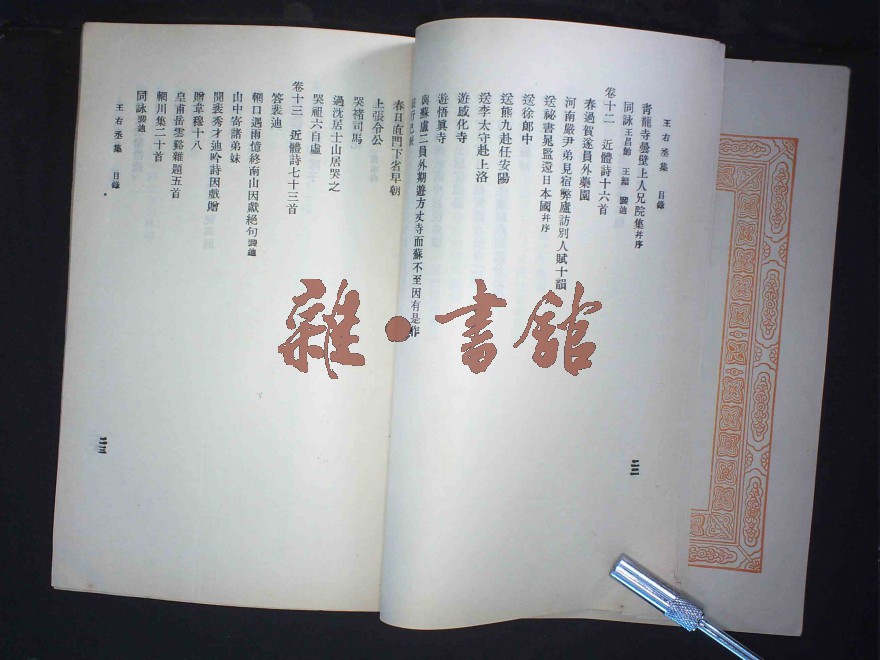 王右丞集 目錄
青龍寺曇壁上人兄院集并序
同詠王昌齡 王縉 裴迪
卷十二 近體詩十六首
春過賀遂員外藥園
河南嚴尹弟見宿弊廬訪別人賦十韻
送祕書晁監還日本國并序
送徐郎中
送熊九赴任安陽
送李太守赴上洛
遊感化寺
遊悟眞寺
與蘇盧二員外期遊方丈寺而蘇不至因有是作
二二
春日直門下省早朝
上張令公
哭褚司馬
過沈居士山居哭之
哭祖六自虛
卷十三 近體詩七十三首
答裴迪
輞口遇雨憶終南山因獻絕句裴迪
山中寄諸弟妹
聞裴秀才迪吟詩因戲贈
贈韋穆十八
皇甫岳雲谿雜題五首
輞川集二十首
同詠裴迪
王右丞集 目錄
二三
雜·書館